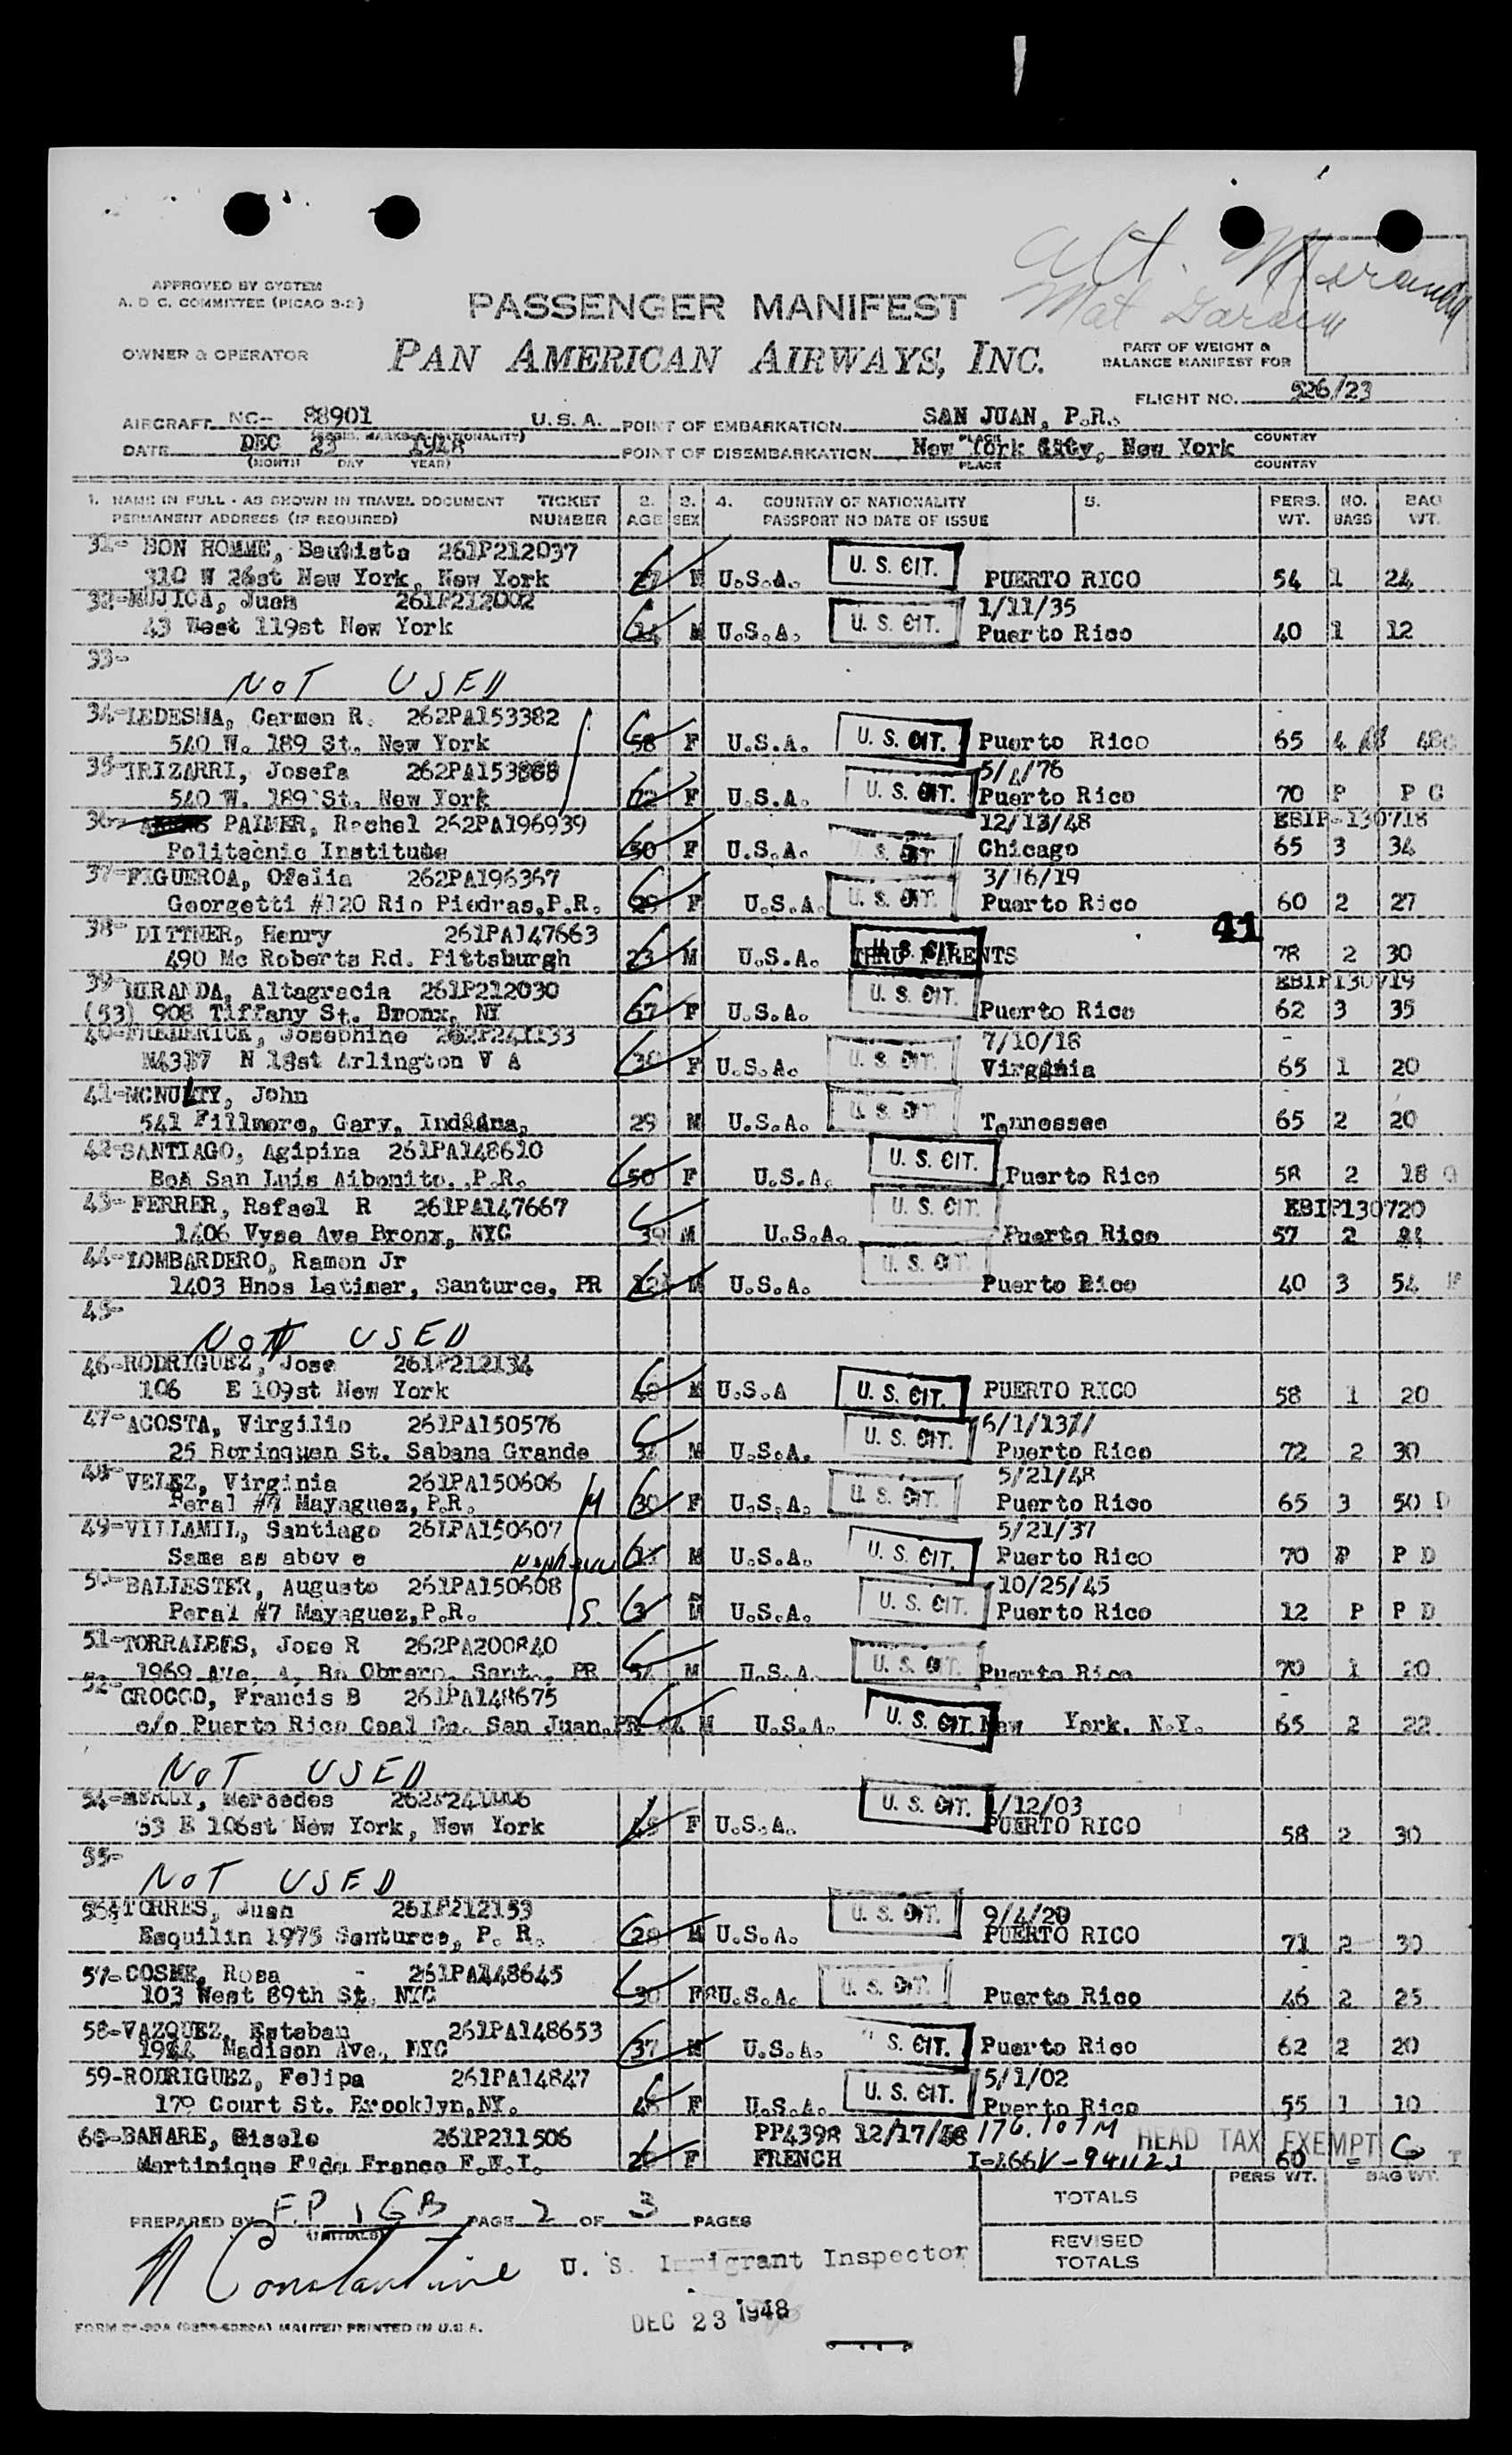 Alt. Miranda
APPROVED BY SYSTEM
A. D C. COMMITTEE (PICAO 3-2)
PASSENGER MANIFEST
Mat
OWNER & OPERATOR
PAN AMERICAN AIRWAYS, INC.
PART OF WEIGHT &
BALANCE MANIFEST FOR
FLIGHT NO. 526/23
AIRCRAFT NC- 88901 U.S.A. POINT OF EMBARKATION SAN JUAN, P.R.
PLACE COUNTRY
DATE DEC 23 1948 POINT OF DISEMBARKATION New York City, New York
(MONTH DAY YEAR) PLACE COUNTRY
1. NAME IN FULL - AS SHOWN IN TRAVEL DOCUMENT TICKET 2. 3. 4. COUNTRY OF NATIONALITY 5. PERS. NO. BAG
PERMANENT ADDRESS (IF REQUIRED) NUMBER AGE SEX PASSPORT NO DATE OF ISSUE WT. BAGS WT.
31- BON HOMME, Bautista 261P212037 U. S. CIT.
310 W 26st New York, New York 27 M U.S.A. PUERTO RICO 54 1 24
32-MUJICA, Juan 261P212002 U. S. CIT. 1/11/35
43 West 119st New York 14 M U.S.A. Puerto Rico 40 1 12
33-
NOT USED
34-LEDESMA, Carmen R. 262PA153382 U. S. CIT.
540 W. 189 St. New York 58 F U.S.A. Puerto Rico 65 4
35-IRIZARRI, Josefa 262PA153888 U. S. CIT. 5/4/76
540 W. 189 St. New York 72 F U.S.A. Puerto Rico 70 P P C
36- PALMER, Rachel 262PA196939 12/13/48 EBIP-130718
Politecnic Institute 50 F U.S.A. U. S. CIT. Chicago 65 3 34
37-FIGUEROA, Ofelia 262PA196367 U. S. CIT. 3/16/19
Georgetti #120 Rio Piedras,P.R. 29 F U.S.A. Puerto Rico 60 2 27
38- DITTNER, Henry 261PA147663 U. S. CIT. 41
490 Mc Roberts Rd. Pittsburgh 23 M U.S.A. THRU PARENTS 78 2 30
39-MIRANDA, Altagracia 261P212030 U. S. CIT. EBIP130719
(53) 908 Tiffany St. Bronx, NY 67 F U.S.A. Puerto Rico 62 3 35
40-FREDERICK, Josephine 262P241133 U. S. CIT. 7/10/18
N4317 N 18st Arlington V A 30 F U.S.A. Virginia 65 1 20
41-MCNULTY, John U. S. CIT.
541 Fillmore, Gary, Indiana, 29 M U.S.A. Tennessee 65 2 20
42-SANTIAGO, Agipina 261PA148610 U. S. CIT.
BoA San Luis Aibonito. ,P.R. 50 F U.S.A. Puerto Rico 58 2 18
43- FERRER, Rafael R 261PA147667 U. S. CIT. EBIP130720
1406 Vyse Ave Bronx, NYC 39 M U.S.A. Puerto Rico 57 2
44-LOMBARDERO, Ramon Jr U. S. CIT.
1403 Hnos Latimer, Santurce, PR 12 M U.S.A. Puerto Rico 40 3 54
45-
NOT USED
46-RODRIGUEZ, Jose 261P212134 U. S. CIT.
106 E 109st New York 48 M U.S.A PUERTO RICO 58 1 20
47-ACOSTA, Virgilio 261PA150576 U. S. CIT. 6/1/13
25 Borinquen St. Sabana Grande M U.S.A. Puerto Rico 72 2 30
48-VELEZ, Virginia 261PA150606 U. S. CIT. 5/21/48
Peral #7 Mayaguez,P.R. M 30 F U.S.A. Puerto Rico 65 3 50 D
49-VILLAMIL, Santiago 261PA150607 U. S. CIT. 5/21/37
Same as abov e nephew 11 M U.S.A. Puerto Rico 70 P P D
50-BALLESTER, Augusto 261PA150608 U. S. CIT. 10/25/45
Peral #7 Mayaguez,P.R. S. 3 M U.S.A. Puerto Rico 12 P P D
51-TORRALBES, Jose R 262PA200840 U. S. CIT.
1969 Ave. A, Bo Obrero, Sant., PR 54 M U.S.A. Puerto Rico 70 1 20
52-CROCCO, Francis B 261PA148675 U. S. CIT.
c/o Puerto Rico Coal Co. San Juan,PR M U.S.A. New York. N.Y. 65 2 22
NOT USED
54- Mercedes U. S. CIT. 1/12/03
53 E 106st New York, New York 45 F U.S.A. PUERTO RICO 58 2 30
55-
NOT USED
56-TORRES, Juan 261P212153 U. S. CIT. 9/4/20
Esquilin 1975 Santurce, P. R. 28 M U.S.A. PUERTO RICO 71 2 30
57-COSME, Rosa - 261PA148645 U. S. CIT.
103 West 89th St. NYC 30 F U.S.A. Puerto Rico 46 2 25
58-VAZQUEZ, Esteban 261PA148653 S. CIT.
Madison Ave., NYC 37 M U.S.A. Puerto Rico 62 2 20
59-RODRIGUEZ, Felipa 261PA14847 U. S. CIT. 5/1/02
179 Court St. Brooklyn,NY. 46 F U.S.A. Puerto Rico 55 1 10
60-BANARE, Gisele 261P211506 PP4398 12/17/48 176.107M HEAD TAX EXEMPT G
Martinique F de France F.W.I. F FRENCH 60
PERS WT. BAG WT.
TOTALS
PREPARED BY F.P , GB PAGE 2 OF 3 PAGES
(INITIALS)
REVISED
TOTALS
N Constantine U. S. Immigrant Inspector
DEC 23 1948